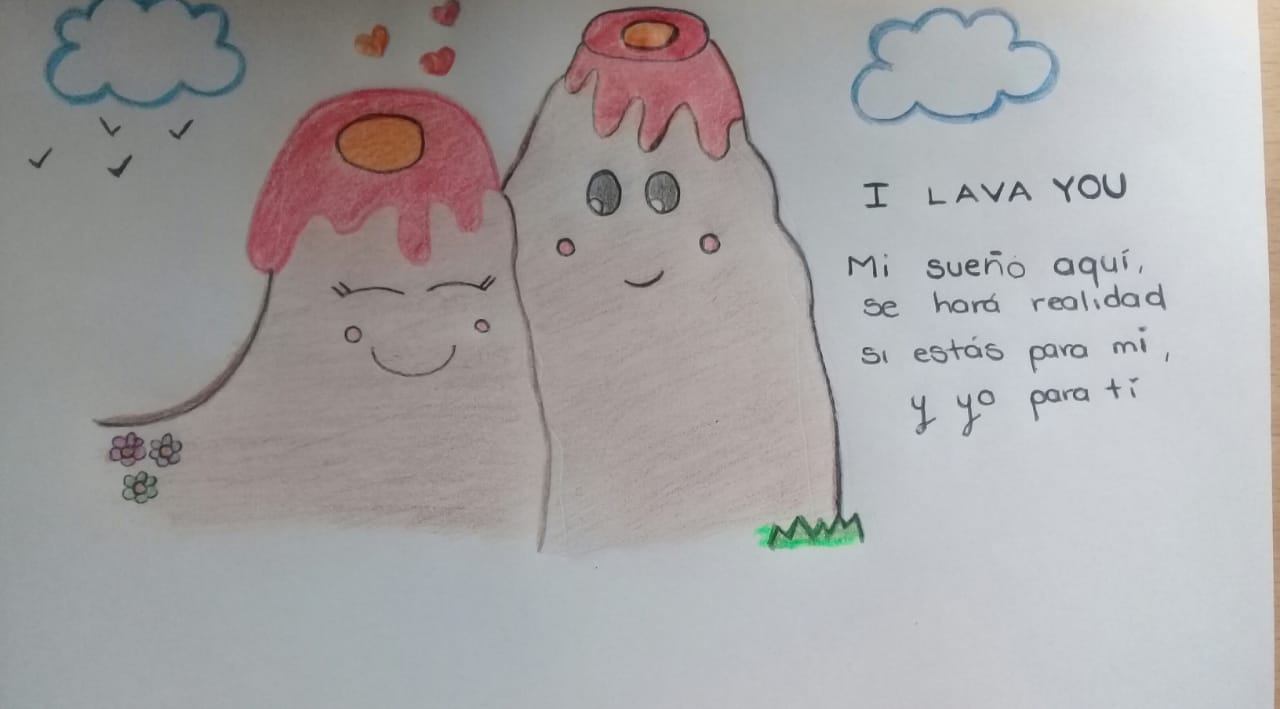 I LAVA YOU
Mi sueño aquí,
se hará realidad
si estás para mi,
y yo para tí